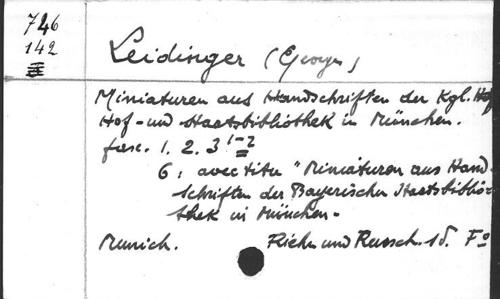 746
142
Leidinger (Georg)
Miniaturen aus Handschriften der Kgl. Hof
Hof- und Staatsbibliothek in München.
fasc. 1. 2. 3 1-2
6, avec titre "Miniaturen aus Hand-
schriften der Bayerischen Staatsbiblio-
thek in München.
Munich. Riehn und Reusch. s d. Fo